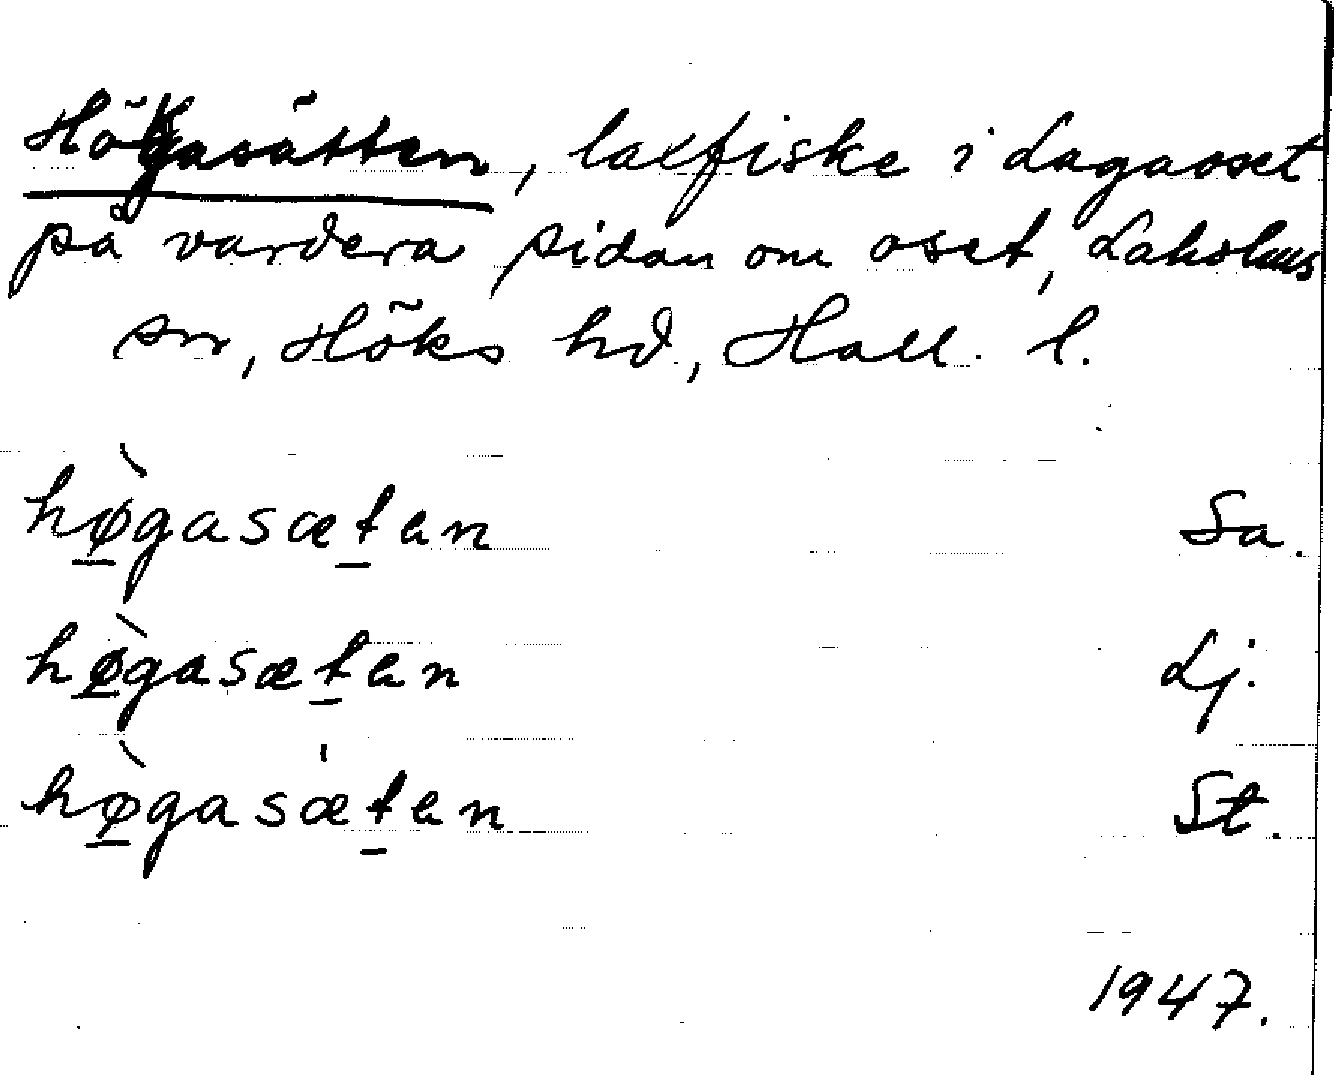 Högasätten, laxfiske i Lagaoset
på vardera sidan om oset, Laholms
sn, Höks hd, Hall. l.
hø̀gasæten Sa.
hø̀gasætən Lj.
hø̀gasæ̍tən St.
1947.